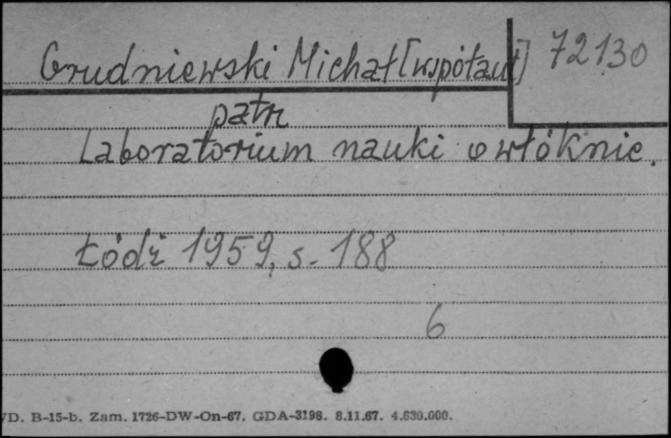 Grudniewski Michał [współaut] 72130
patrz
Laboratorium nauki o włóknie.
Łódź 1959, s. 188
6
D. B-15-b. Zam. 1726-DW-On-67. GDA-3198. 8.11.67. 4.630.000.